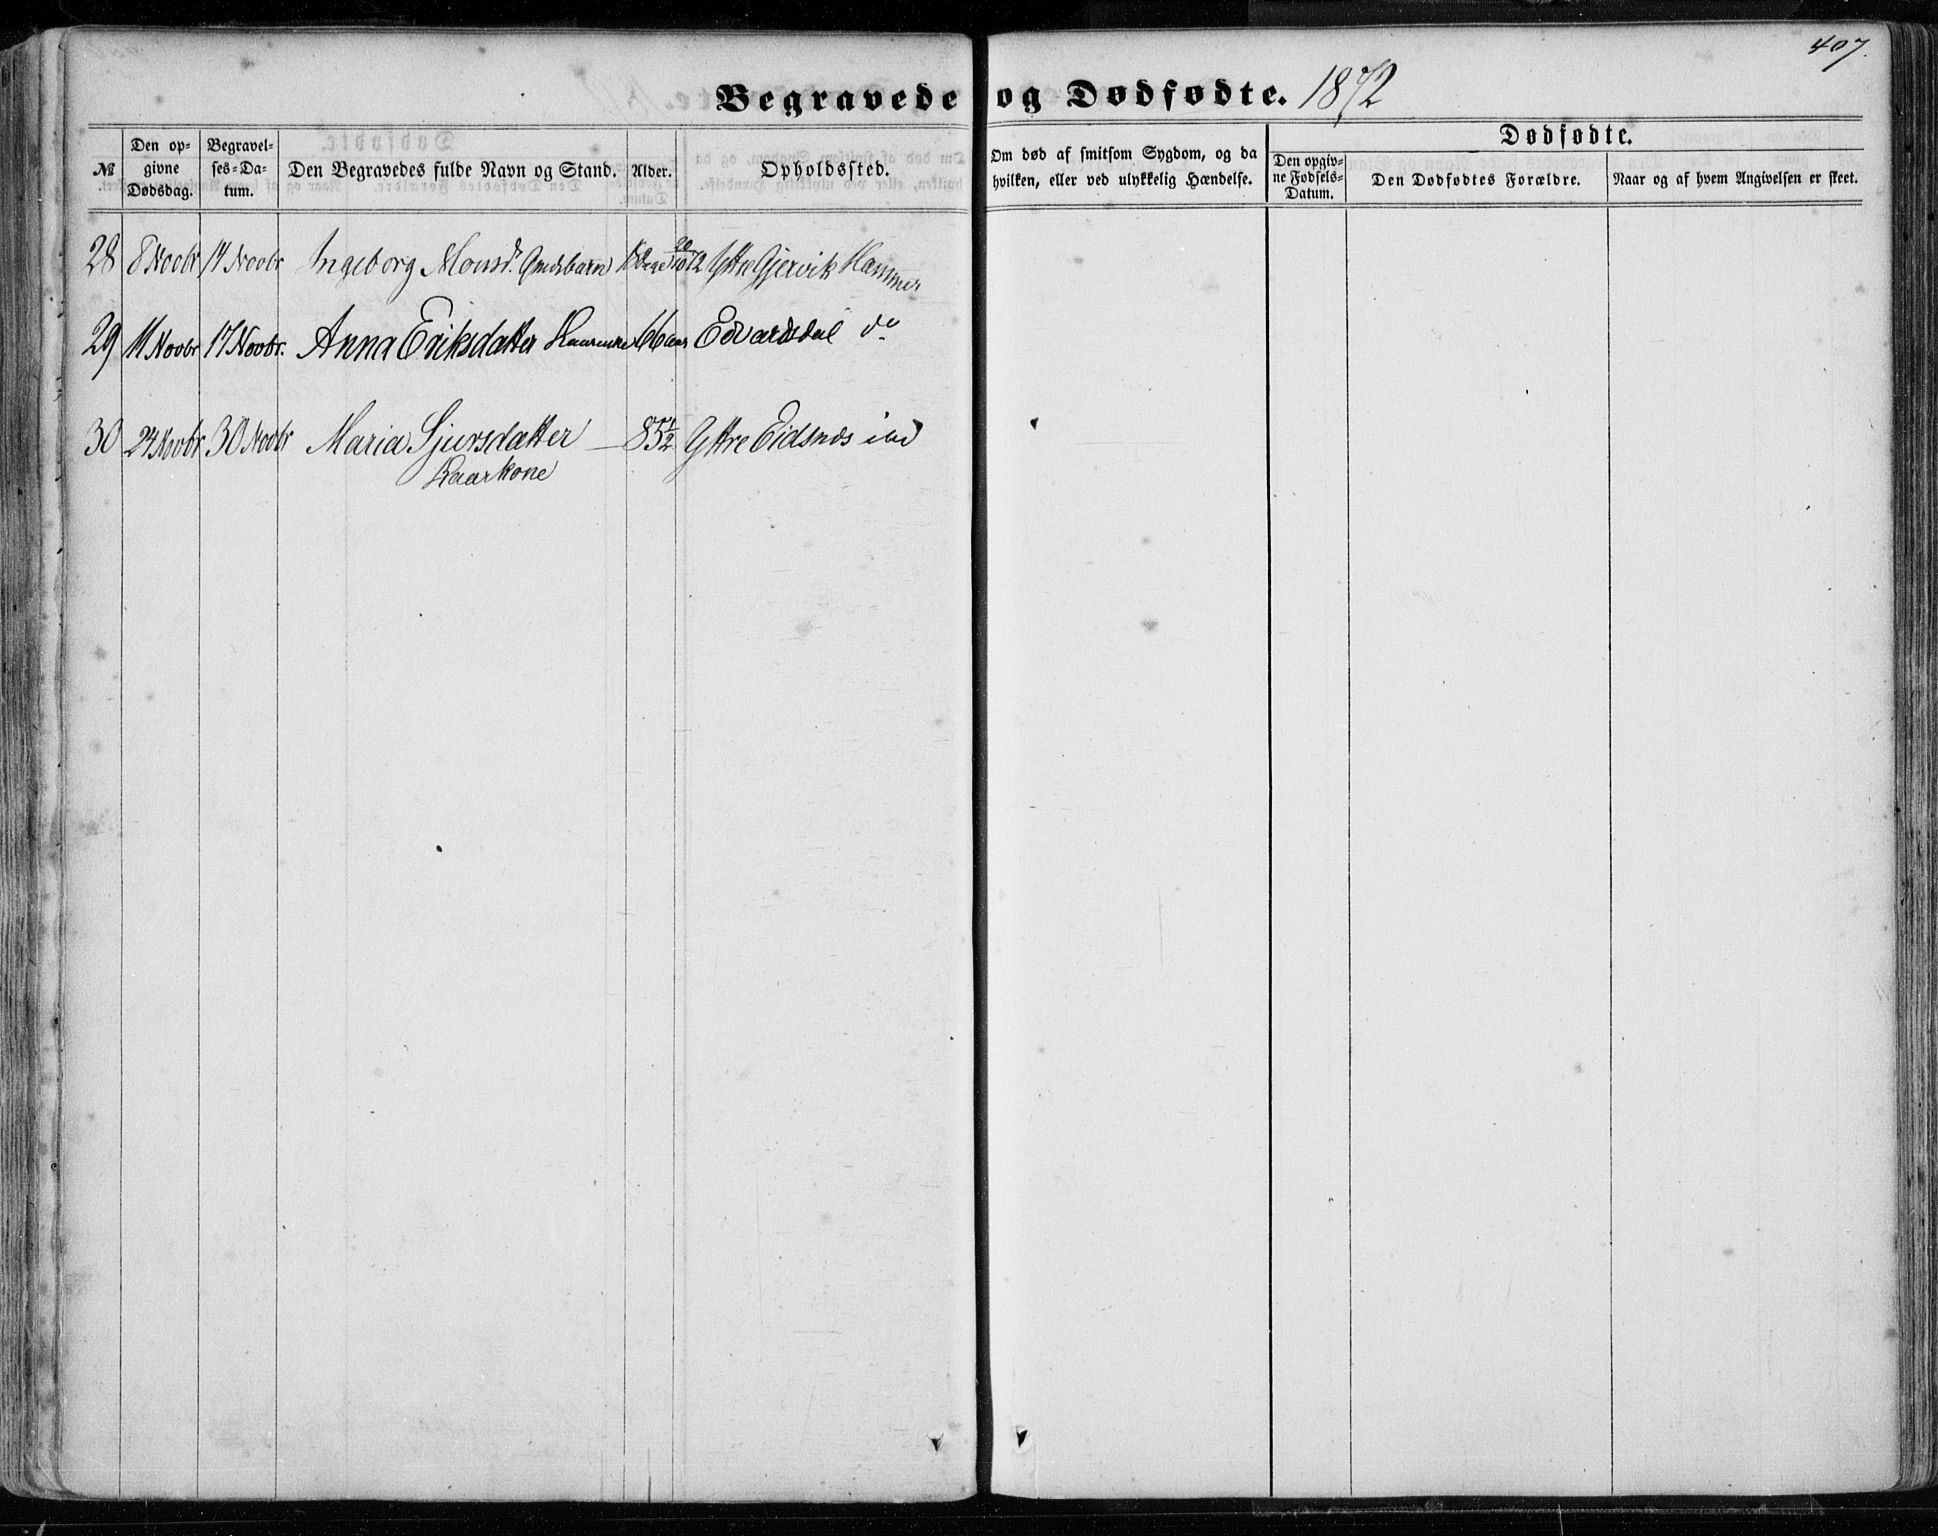 407.
Begravede og Dødfødte. 1872
Dødfødte.
№
Den op-
givne
Dødsdag.
Begravel-
ses-Da-
tum.
Den Begravedes fulde Navn og Stand.
Alder.
Opholdssted.
Om død af smitsom Sygdom, og da
hvilken, eller ved ulykkelig Hændelse.
Den opgiv-
ne Fødsels-
Datum.
Den Dødfødtes Forældre.
Naar og af hvem Angivelsen er skeet.
28 8 Novbr 14 Novbr Ingeborg Monsd. 20/10 72 Ytre Gjervik Hammer
29 11 Novbr 17 Novbr. Anna Eriksdatter 66 aar Edvardsdal do
30 24 Novbr 30 Novbr Maria Sjursdatter — 85 1/2 Yttre Eidsnes
Kaarkone